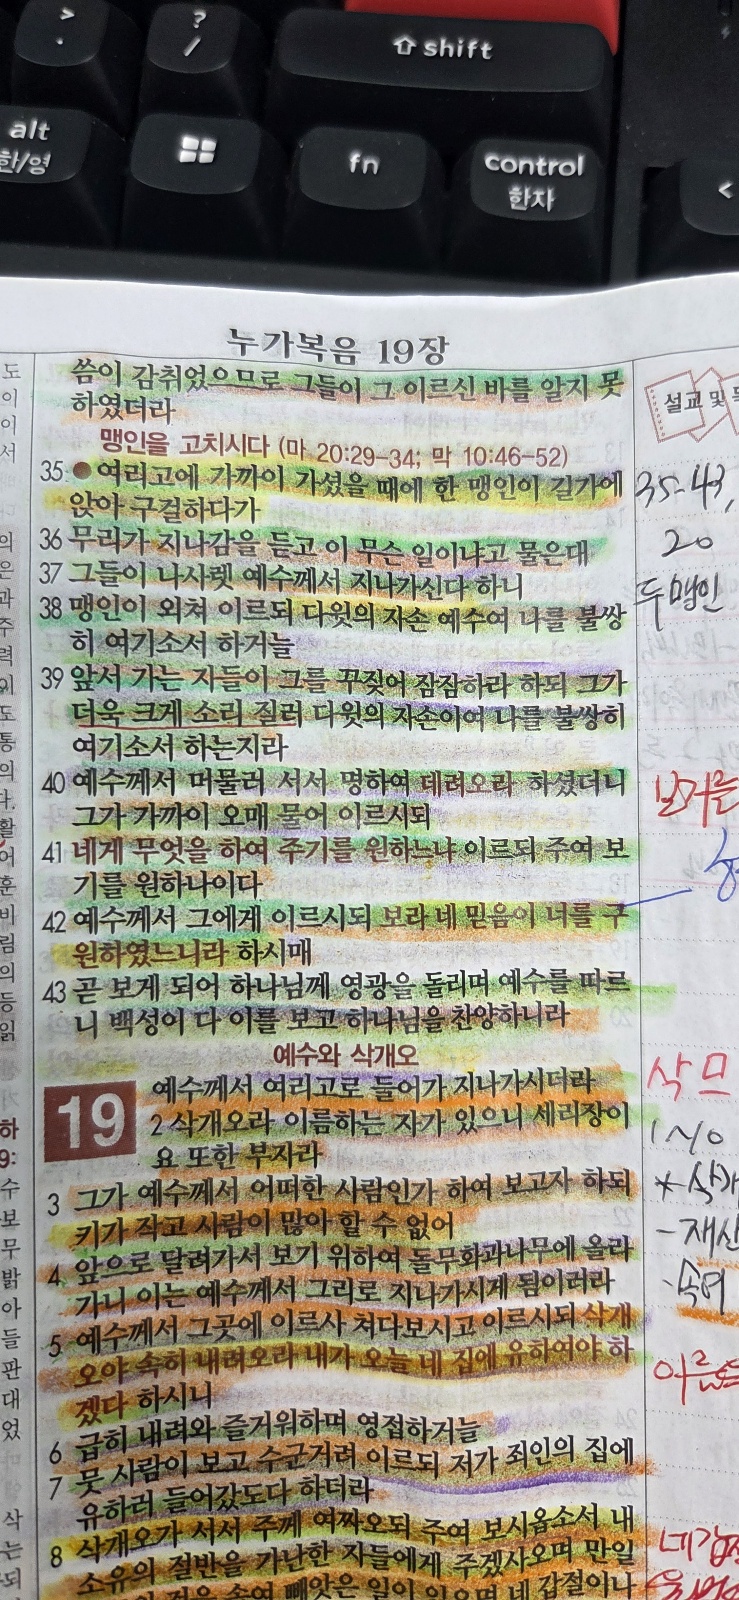 > .
? /
⇧ shift
alt 한/영
fn
control 한자
<
누가복음 19장
씀이 감취었으므로 그들이 그 이르신 바를 알지 못
하였더라
맹인을 고치시다 (마 20:29-34; 막 10:46-52)
35 ●여리고에 가까이 가셨을 때에 한 맹인이 길가에
앉아 구걸하다가
36 무리가 지나감을 듣고 이 무슨 일이냐고 물은대
37 그들이 나사렛 예수께서 지나가신다 하니
38 맹인이 외쳐 이르되 다윗의 자손 예수여 나를 불쌍
히 여기소서 하거늘
39 앞서 가는 자들이 그를 꾸짖어 잠잠하라 하되 그가
더욱 크게 소리 질러 다윗의 자손이여 나를 불쌍히
여기소서 하는지라
40 예수께서 머물러 서서 명하여 데려오라 하셨더니
그가 가까이 오매 물어 이르시되
41 네게 무엇을 하여 주기를 원하느냐 이르되 주여 보
기를 원하나이다
42 예수께서 그에게 이르시되 보라 네 믿음이 너를 구
원하였느니라 하시매
43 곧 보게 되어 하나님께 영광을 돌리며 예수를 따르
니 백성이 다 이를 보고 하나님을 찬양하니라
예수와 삭개오
19 예수께서 여리고로 들어가 지나가시더라
2 삭개오라 이름하는 자가 있으니 세리장이
요 또한 부자라
3 그가 예수께서 어떠한 사람인가 하여 보고자 하되
키가 작고 사람이 많아 할 수 없어
4 앞으로 달려가서 보기 위하여 돌무화과나무에 올라
가니 이는 예수께서 그리로 지나가시게 됨이러라
5 예수께서 그곳에 이르사 쳐다보시고 이르시되 삭개
오야 속히 내려오라 내가 오늘 네 집에 유하여야 하
겠다 하시니
6 급히 내려와 즐거워하며 영접하거늘
7 뭇 사람이 보고 수군거려 이르되 저가 죄인의 집에
유하러 들어갔도다 하더라
8 삭개오가 서서 주께 여짜오되 주여 보시옵소서 내
소유의 절반을 가난한 자들에게 주겠사오며 만일
설교 및
35-43,
20
두 맹인
1~10